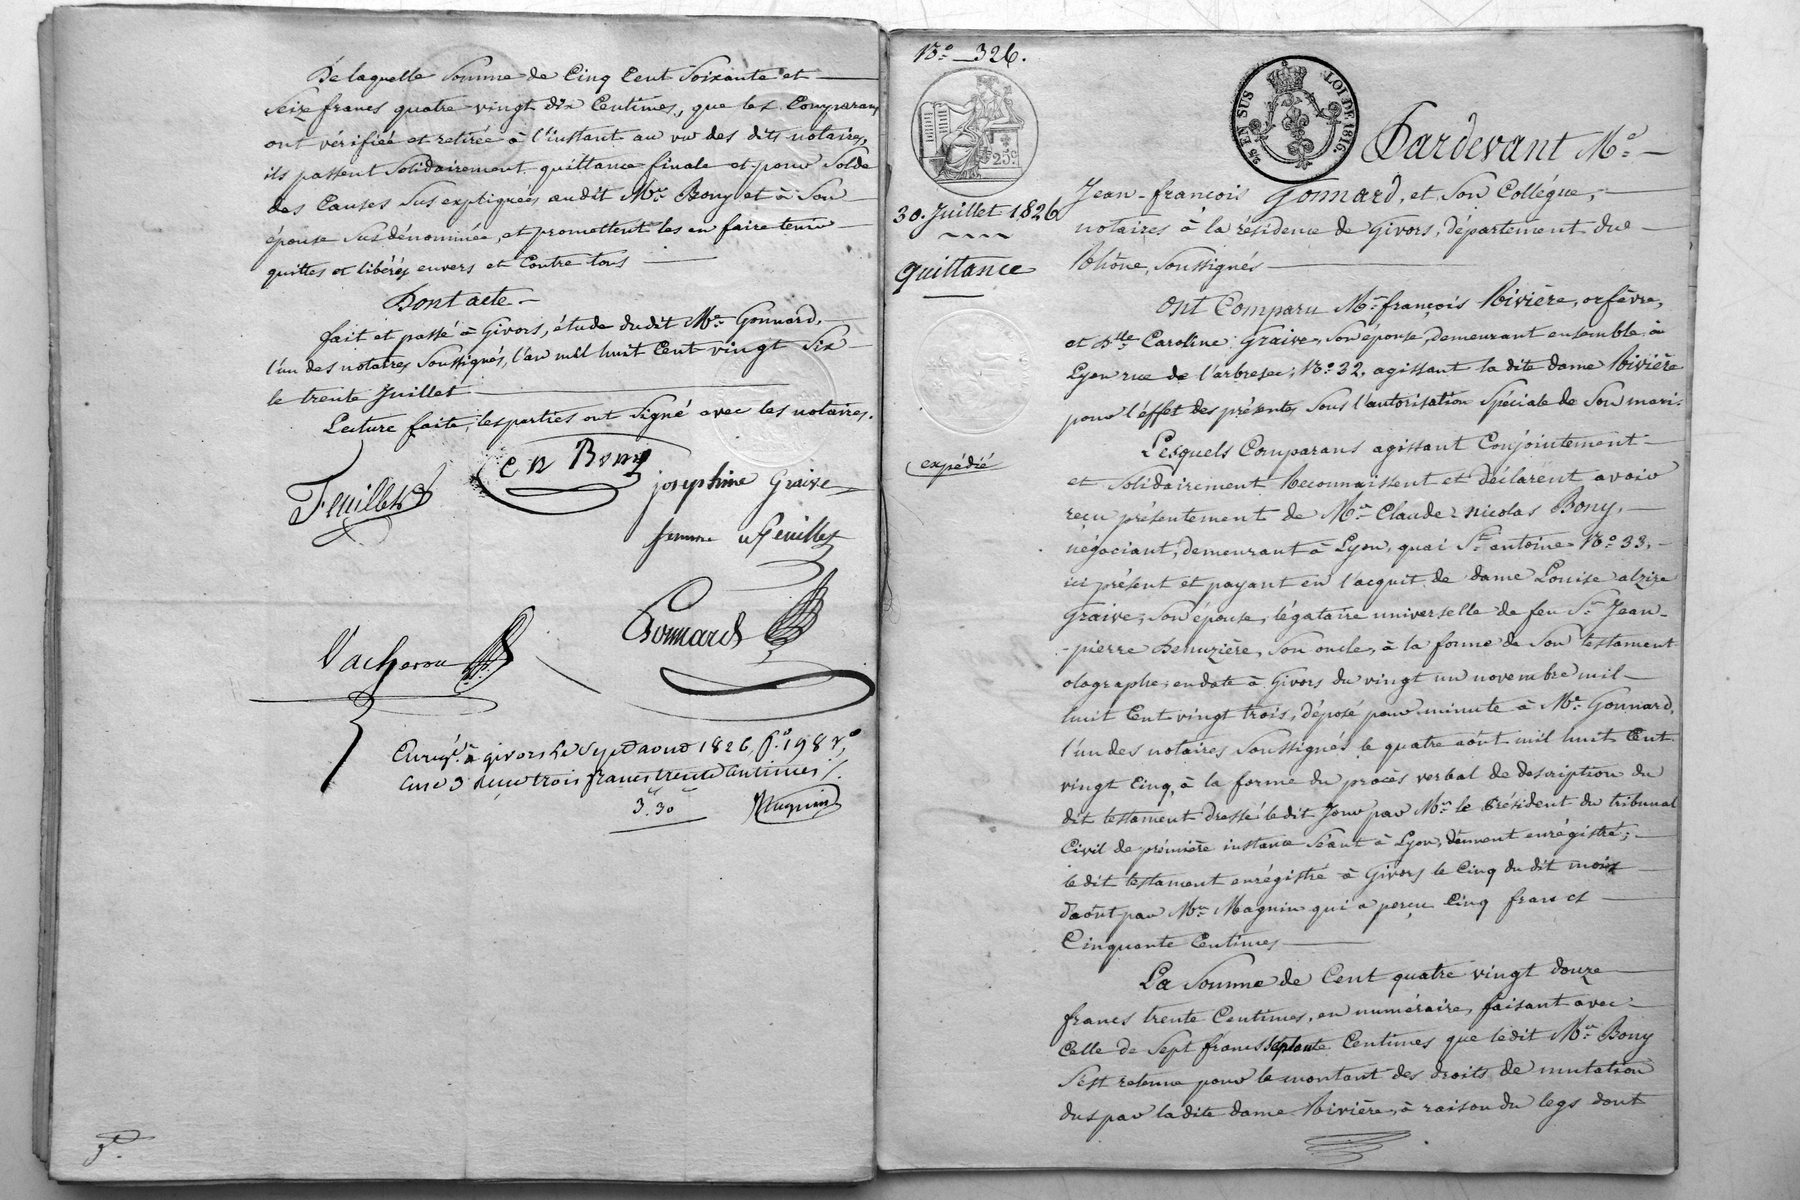 De laquelle Somme de Cinq Cent Soixante et
Seize francs quatre vingt dix Centimes, que les Comparans
ont vérifiée et retirée à l'instant au vu des dits notaires,
ils passent Solidairement quittance finale et pour Solde
des Causes Sus expliquées audit Mr. Bony et à Son
épouse Susdénommée, et promettent les en faire tenir
quittes et libérés envers et Contre tous
Dont acte
fait et passé à Givors, étude dudit Me. Gonnard,
l'un des notaires Soussignés, l'an mil huit Cent vingt Six
le trente Juillet
Lecture faite, les parties ont Signé avec les notaires.
Feuillet
C N Bony
josephine Graive
femme Feuillet
Gonnard
Vacheron
Enregt. à givors le Sept aout 1826, fo. 198 vo.
Case 3 Reçu trois francs trente centimes
3.30
Magnin
No. 326.
25c
25 EN SUS
LOI DE 1816.
30. Juillet 1826
Quittance
expédié
Pardevant Me.
Jean-françois Gonnard, et Son Collégue,
notaires à la résidence de Givors, département du
Rhône, Soussignés
Ont Comparu Mr. françois Rivière, orfèvre,
et Dlle. Caroline Graive, Son épouse, demeurant ensemble à
Lyon rue de l'arbresec, No. 32, agissant la dite dame Rivière
pour l'effet des présentes Sous l'autorisation Spéciale de Son mari.
Lesquels Comparans agissant Conjointement
et Solidairement Reconnaissent et Déclarent avoir
reçu présentement de Mr. Claude-nicolas Bony,
négociant, demeurant à Lyon, quai St. antoine No. 33,
ici présent et payant en l'acquit de dame Louise alzire
Graive, Son épouse, légataire universelle de feu Sr. Jean-
-pierre Denuzière, Son oncle, à la forme de Son testament
olographe, en date à Givors du vingt un novembre mil
huit Cent vingt trois, déposé pour minute à Me. Gonnard,
l'un des notaires Soussignés le quatre aout mil huit Cent
vingt Cinq, à la forme du procès verbal de description du
dit testament Dressé ledit Jour par Mr. le Président du tribunal
Civil de prémière instance Séant à Lyon, dûment enrégistré;
le dit testament enrégistré à Givors le Cinq du dit mois
d'aout par Mr. Magnin qui a perçu Cinq francs
Cinquante Centimes
La Somme de Cent quatre vingt douze
francs trente Centimes, en numéraire, faisant avec
Celle de Sept francs Septante Centimes que ledit Mr. Bony
S'est retenue pour le montant des droits de mutation
dus par la dite dame Rivière, à raison du legs dont